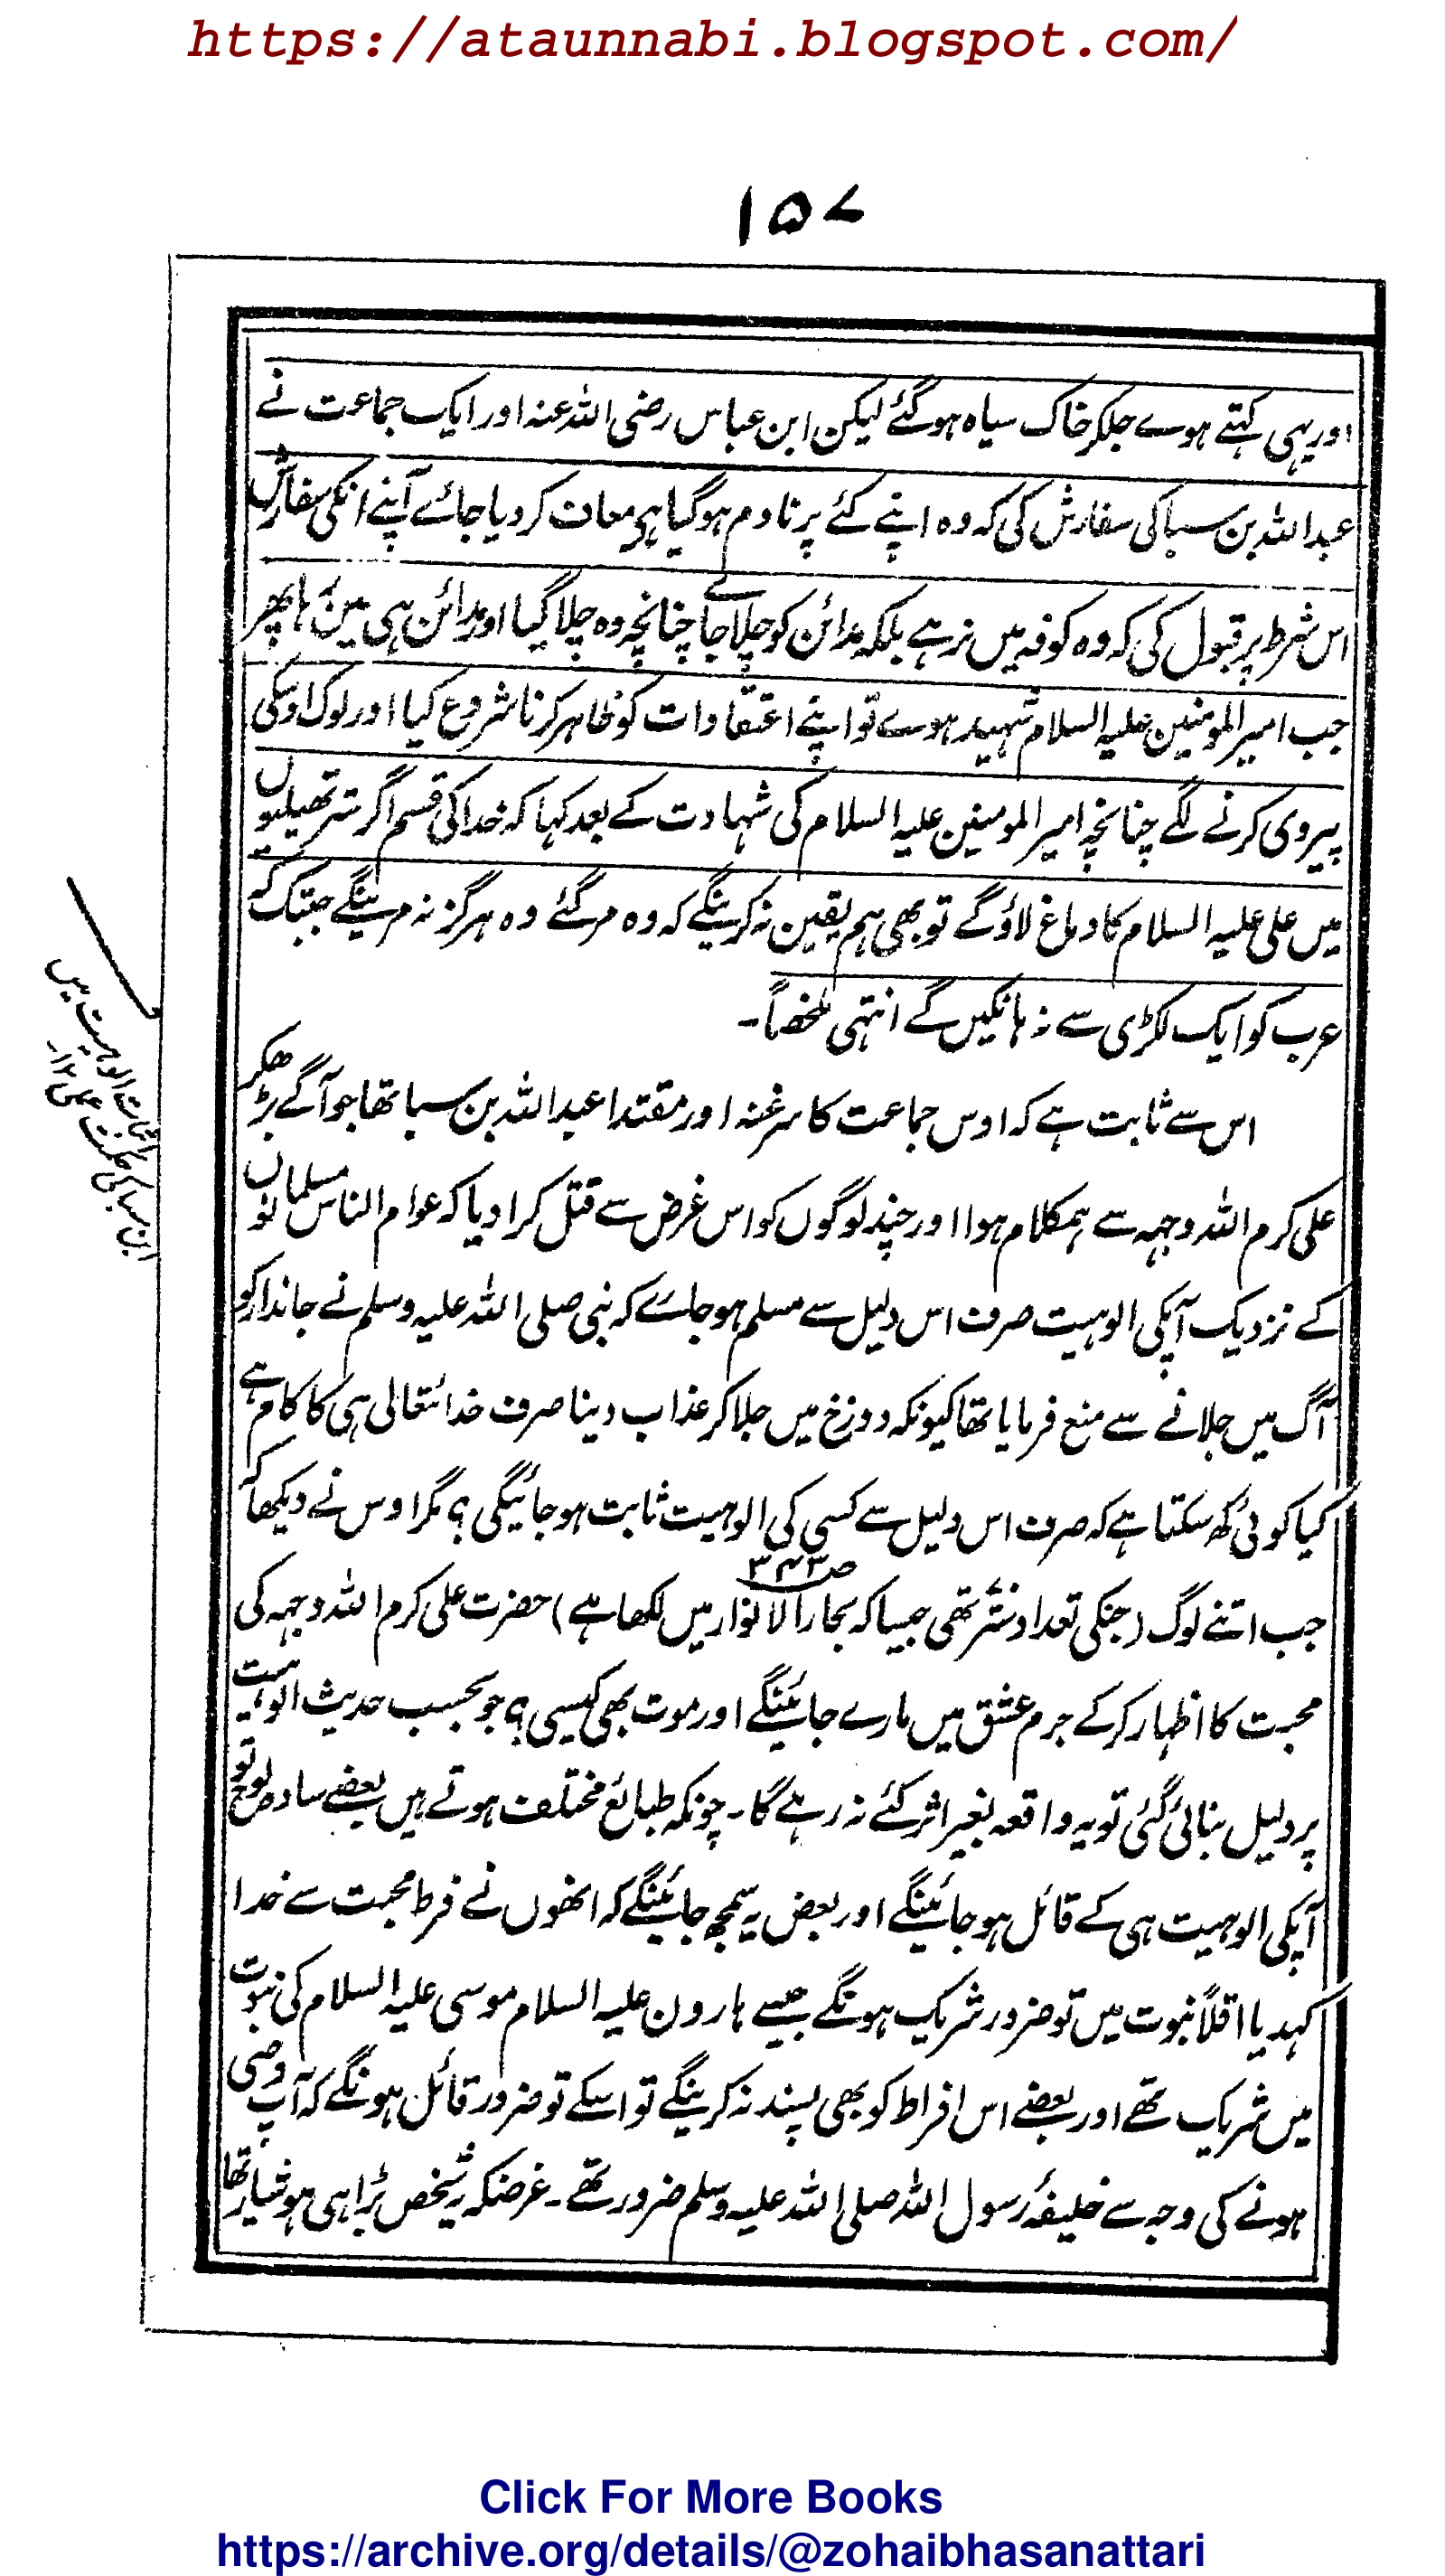 https://ataunnabi.blogspot.com/
۱۵۷
اور یہی کہتے ہوے جلکر خاک سیاہ ہوگئے لیکن ابن عباس رضی اللہ عنہ اور ایک جماعت نے
عبداللہ بن سبا کی سفارش کی کہ وہ اپنے کئے پر نادم ہوگیا ہی معاف کر دیا جائے آپنے انکی سفارش
اس شرط پر قبول کی کہ وہ کوفہ میں نرہے بلکہ مدائن کو چلا جاے چنانچہ وہ چلا گیا اور مدائن ہی مین رہا پھر
جب امیر المومنین علیہ السلام شہید ہوے تو اپنے اعتقادات کو ظاہر کرنا شروع کیا اور لوگ اوسکی
پیروی کرنے لگے چنانچہ امیر المومنین علیہ السلام کی شہادت کے بعد کہا کہ خدا کی قسم اگر ستر تھیلیوں
میں علی علیہ السلام کا دماغ لاؤگے تو بھی ہم یقین نہ کرینگے کہ وہ مر گئے وہ ہرگز نہ مرینگے جبتک کہ
عرب کو ایک لکڑی سے نہ ہانکیں گے انتہی ملخصاً۔
اس سے ثابت ہے کہ اوس جماعت کا سرغنہ اور مقتدا عبداللہ بن سبا تھا جو آگے بڑھکر
علی کرم اللہ وجہہ سے ہمکلام ہوا اور چند لوگوں کو اس غرض سے قتل کرا دیا کہ عوام الناس مسلمانوں
کے نزدیک آپکی الوہیت صرف اس دلیل سے مسلم ہوجاے کہ نبی صلی اللہ علیہ وسلم نے جاندار کو
آگ میں جلانے سے منع فرمایا تھا کیونکہ دوزخ میں جلا کر عذاب دینا صرف خدائتعالی ہی کا کام ہے
کیا کوئی کھ سکتا ہے کہ صرف اس دلیل سے کسی کی الوہیت ثابت ہوجائیگی ؟ مگر اوس نے دیکھا کہ
جب اتنے لوگ (جنکی تعداد ستر تھی جیسا کہ بحار الانوار میں لکھا ہے) حضرت علی کرم اللہ وجہہ کی
ص۳۴۳
محبت کا اظہار کر کے جرم عشق میں مارے جائینگے اور موت بھی کیسی ؟ جو بحسب حدیث الوہیت
پر دلیل بنائی گئی تو یہ واقعہ بغیر اثر کئے نہ رہے گا۔ چونکہ طبائع مختلف ہوتے ہیں بعضے سادہ لوح تو
آپکی الوہیت ہی کے قائل ہوجائینگے اور بعض یہ سمجھ جائینگے کہ انھوں نے فرط محبت سے خدا
کہدیا اقلاً نبوت میں تو ضرور شریک ہونگے جیسے ہارون علیہ السلام موسی علیہ السلام کی نبوت
میں شریک تھے اور بعضے اس افراط کو بھی پسند نہ کرینگے تو اسکے تو ضرور قائل ہونگے کہ آپ وصی
ہونے کی وجہ سے خلیفۂ رسول اللہ صلی اللہ علیہ وسلم ضرور تھے۔ غرضکہ یہ شخص بڑا ہی ہوشیار تھا
اثبات الوہیت میں
ابن سبا کی حکمت عملی ۱۲
Click For More Books
https://archive.org/details/@zohaibhasanattari